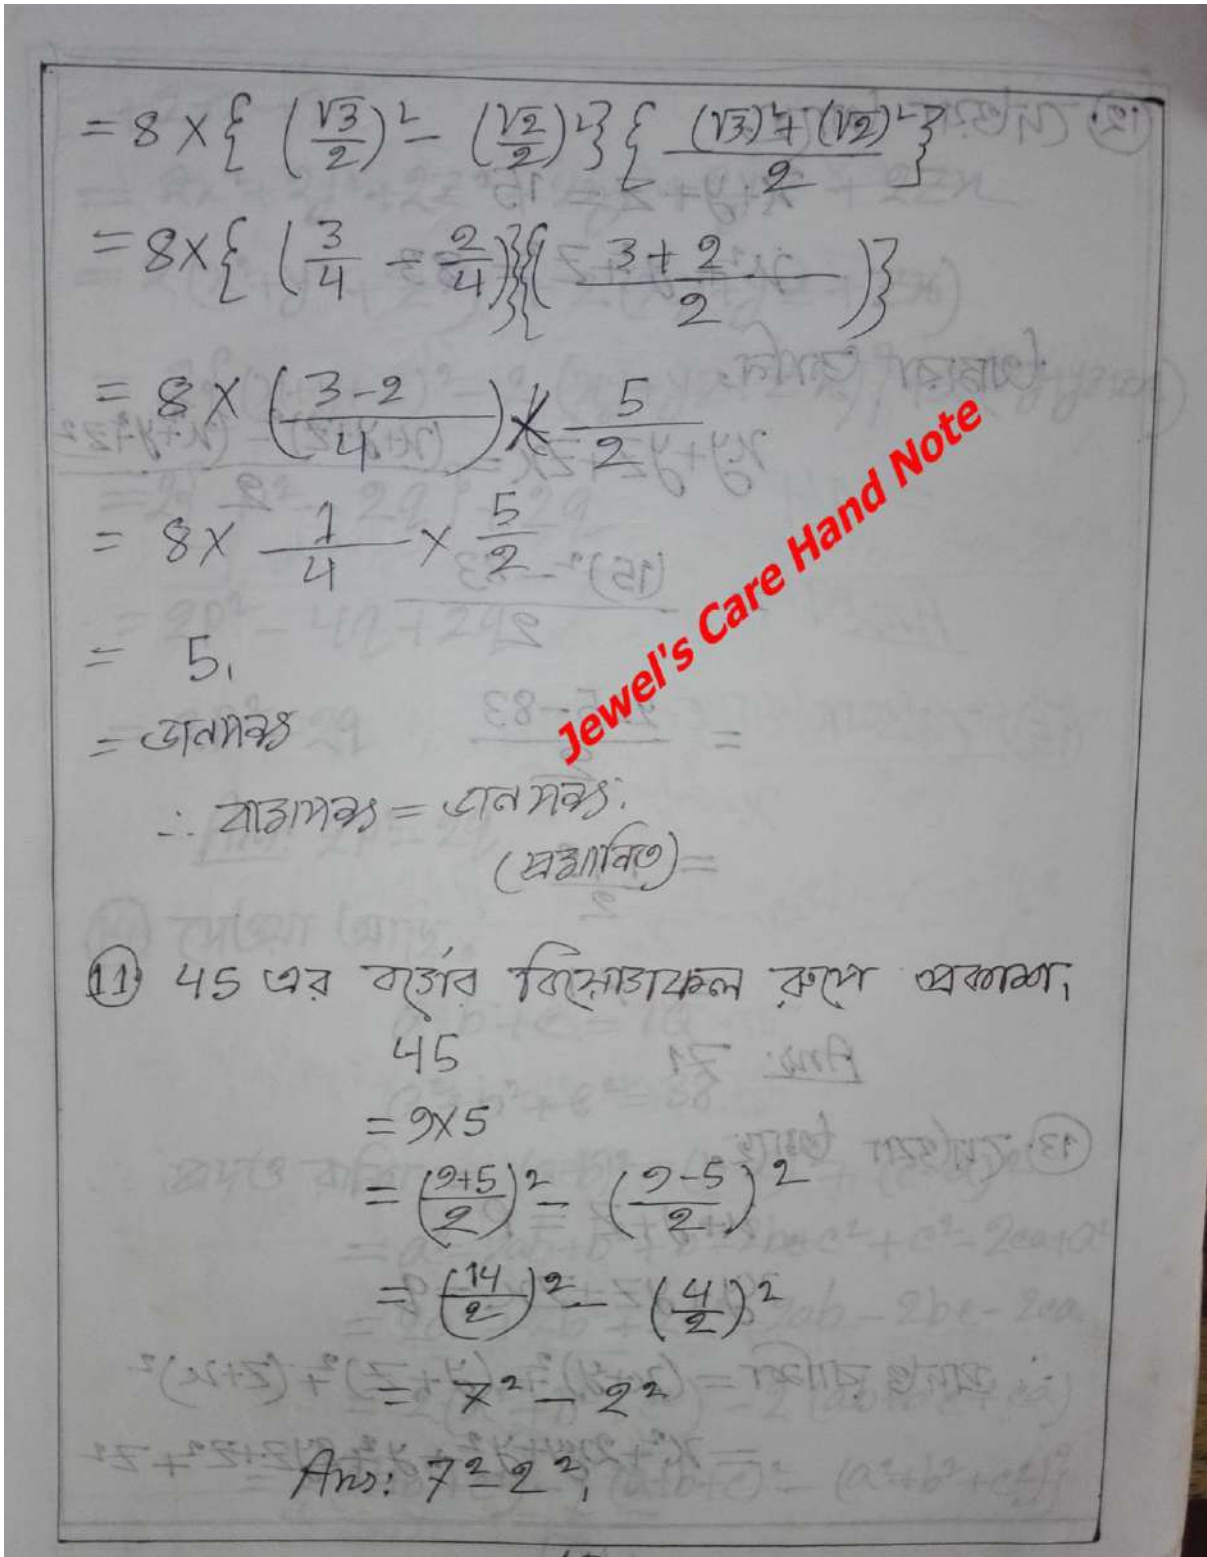 = 8 × { (√3/2)² − (√2/2)² } { (√3)² + (√2)² / 2 }
= 8 × { (3/4 − 2/4) } { ( 3 + 2 / 2 ) }
= 8 × ( 3 - 2 / 4 ) × 5/2
= 8 × 1/4 × 5/2
= 5.
= ডানপক্ষ
∴ বামপক্ষ = ডানপক্ষ.
(প্রমাণিত)
Jewel's Care Hand Note
11. 45 এর বর্গের বিয়োগফল রুপে প্রকাশ।
45
= 9×5
= (9+5/2)² − (9-5/2)²
= (14/2)² − (4/2)²
= 7² − 2²
Ans: 7² - 2²।